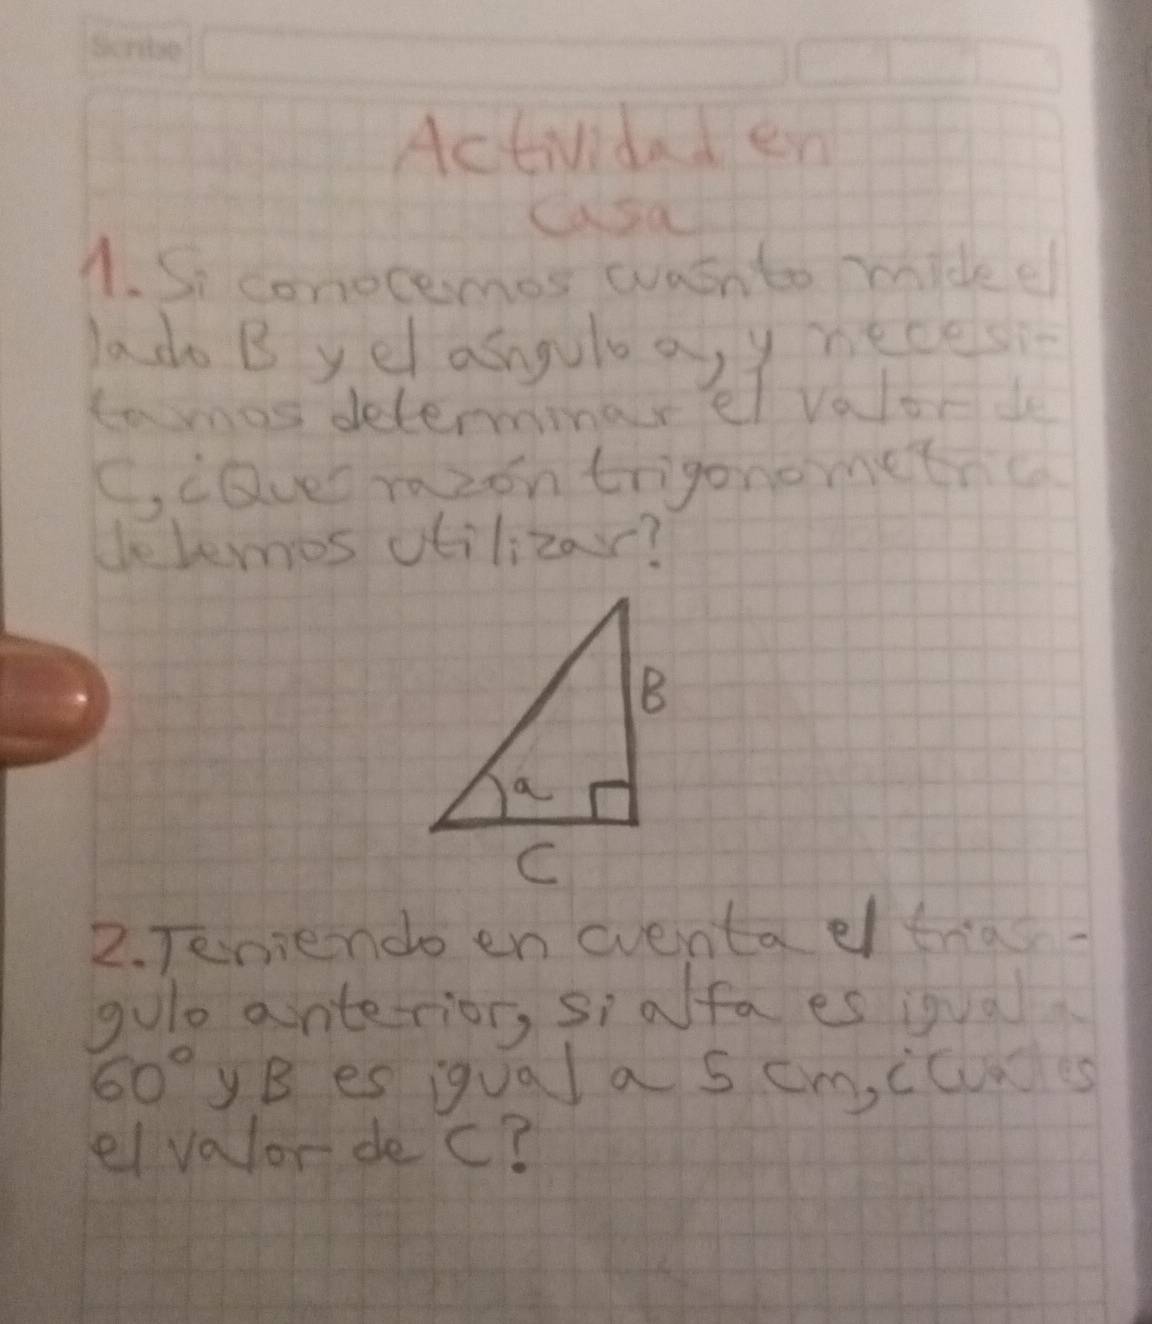 Scribe
Actividad en
casa
1. Si conocemos cuánto mide el
lado B y el ángulo a, y necesi-
tamos determinar el valor de
C, ¿Qué razón trigonométrica
debemos utilizar?
B
a
C
2. Teniendo en cuenta el trián-
gulo anterior, si alfa es igual a
60° y B es igual a 5 cm, ¿Cuál es
el valor de C?